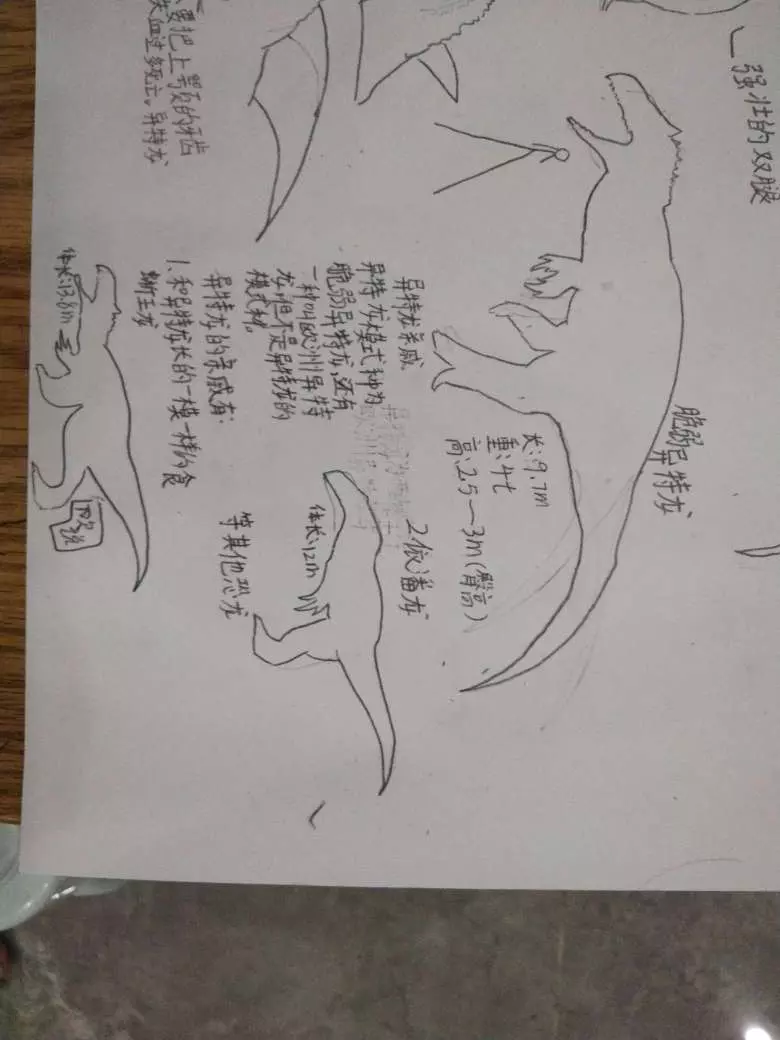 强壮的双腿
脆弱异特龙
长:9.7m
重:4t
高:2.5—3m(臀高)
要把上颚的牙齿
失血过多死亡。异特龙
异特龙亲戚
异特龙模式种为
脆弱异特龙,还有
一种叫欧洲异特
龙,但不是异特龙的
模式种。
异特龙的亲戚有:
1.和异特龙长的一模一样的食
蜥王龙
体长:13.8m
2.依潘龙
体长:12m
等其他恐龙